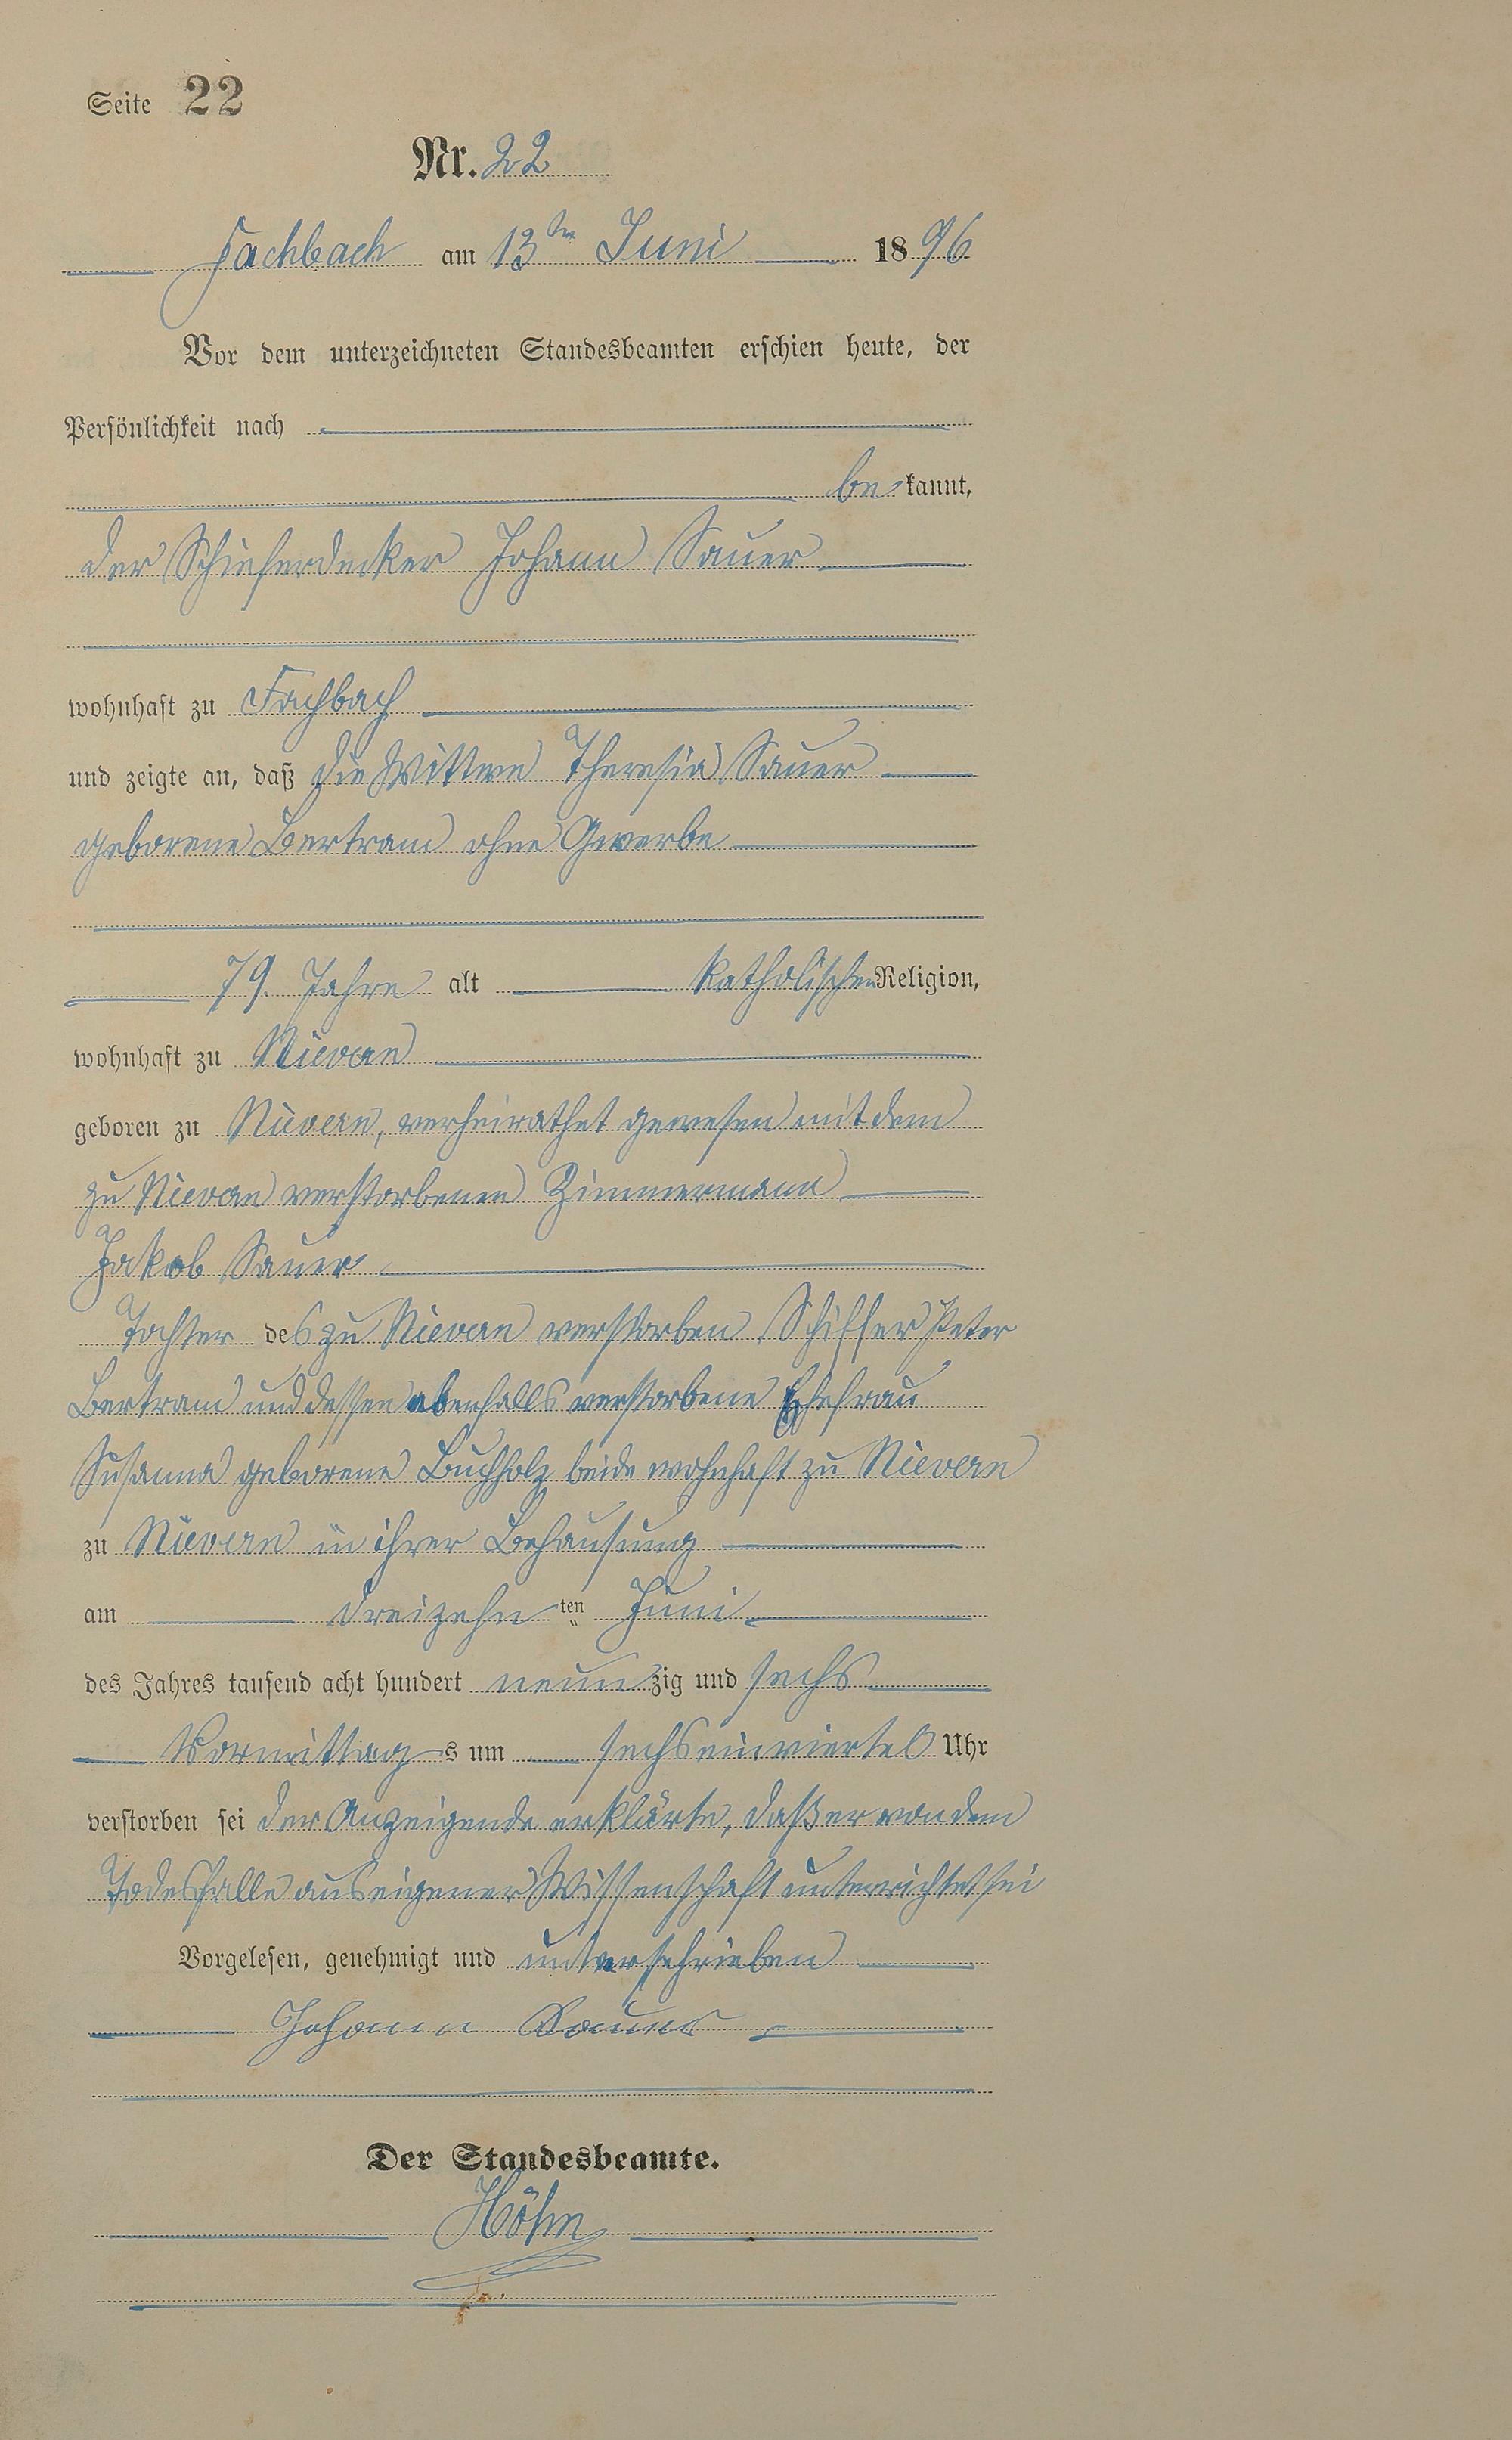 Seite 22
Nr. 22
Fachbach am 13ten Juni 1896
Vor dem unterzeichneten Standesbeamten erschien heute, der
Persönlichkeit nach
be kannt,
der Schieferdecker Johann Sauer
wohnhaft zu Fachbach
und zeigte an, daß die Wittwe Theresia Sauer
geborene Bertram ohne Gewerbe
79 Jahre alt katholischer Religion,
wohnhaft zu Nievern
geboren zu Nievern, verheirathet gewesen mit dem
zu Nievern verstorbenen Zimmermann
Jakob Sauer
Tochter des zu Nievern verstorben Schiffer Peter
Bertram und dessen ebenfalls verstorbene Ehefrau
Susanna geborene Buchholz beide wohnhaft zu Nievern
zu Nievern in ihrer Behausung
am dreizehn ten Juni
des Jahres tausend acht hundert neun zig und sechs
Vormittag s um sechs einviertel Uhr
verstorben sei der Anzeigende erklärte, daß er von dem
Todesfalle aus eigener Wissenschaft unterrichtet sei
Vorgelesen, genehmigt und unterschrieben
Johann Sauer
Der Standesbeamte.
Höhn